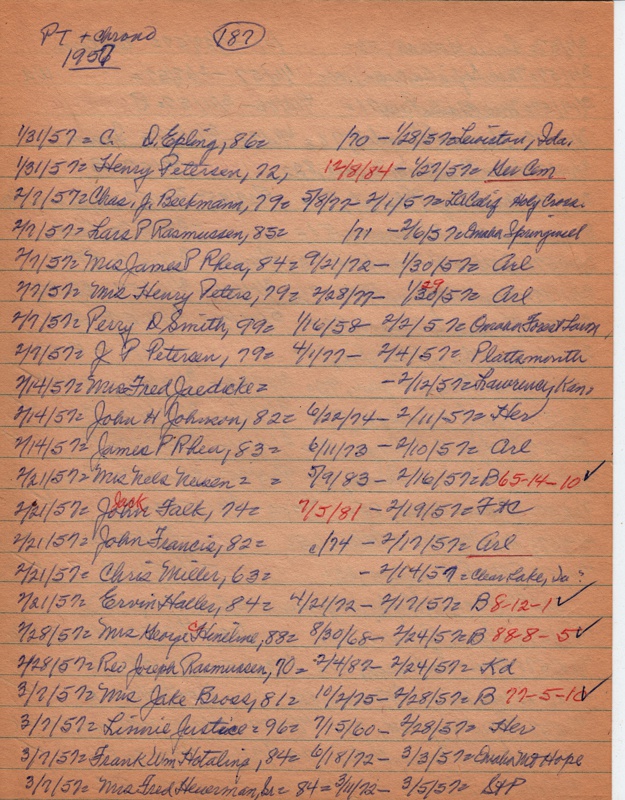 PT + chrono 187
1957
1/31/57 = C. D. Epling, 86 = /70 - 1/28/57 = Lewiston, Ida.
1/31/57 = Henry Petersen, 72, 12/8/84 - 1/27/57 = Her Cem
2/7/57 = Chas. J. Beckmann, 79 = 5/8/77 - 2/1/57 = Holy Cross.
2/7/57 = Lars P Rasmussen, 85 = /71 - 2/6/57 = Omaha
2/7/57 = Mrs James P Rhea, 84 = 9/21/72 - 1/30/57 = Arl
2/7/57 = Mrs Henry Peters, 79 = 2/28/77 - 1/30/57 = Arl 29
2/7/57 = Perry D Smith, 99 = 1/16/58 - 2/2/57 = Omaha Forest Lawn,
2/7/57 = J. P Petersen, 79 = 4/1/77 - 2/4/57 = Plattsmouth
2/14/57 = Mrs Fred Jaedicke = - 2/12/57 = Lawrence, Kan.
2/14/57 = John H Johnson, 82 = 6/22/74 - 2/11/57 = Her
2/14/57 = James P Rhea, 83 = 6/11/73 - 2/10/57 = Arl
2/21/57 = Mrs Nels Nielsen = = 5/9/83 - 2/16/57 = B 65-14-10 ✓
2/21/57 = John Jack Falk, 74 = 7/5/81 - 2/19/57 = FtC
2/21/57 = John Francis, 82 = c/74 - 2/17/57 = Arl
2/21/57 = Chris Miller, 63 = - 2/14/57 = Clear Lake, Ia ?
2/21/57 = Ervin Haller, 84 = 4/21/72 - 2/17/57 = B 8-12-1 ✓
2/28/57 = Mrs George C Hineline, 88 = 8/30/68 - 2/24/57 = B 88-8-5 ✓
2/28/57 = Rev Joseph Rasmussen, 70 = 2/4/87 - 2/24/57 = Kd
3/7/57 = Mrs Jake Broes, 81 = 10/2/75 - 2/28/57 = B 77-5-10 ✓
3/7/57 = Linnie Justice = 96 = 7/15/60 - 2/28/57 = Her
3/7/57 = Frank Wm Hotaling, 84 = 6/18/72 - 3/3/57 = Omaha Mt Hope
3/7/57 = Mrs Fred Heuerman, Sr = 84 = 3/11/72 - 3/5/57 = StP